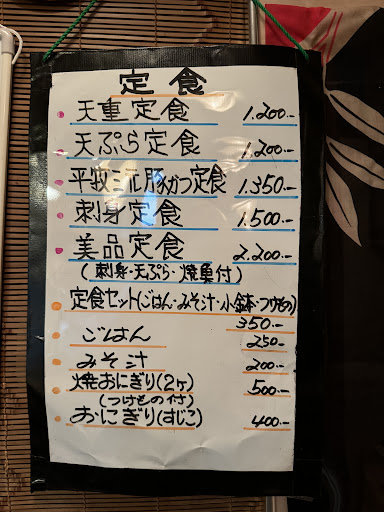 定食
天重定食 1.200-
天ぷら定食 1.200-
平牧三元豚かつ定食 1.350-
刺身定食 1.500-
美品定食 2.200-
(刺身・天ぷら・焼魚付)
定食セット(ごはん・みそ汁・小鉢・つけもの)
350-
ごはん 250-
みそ汁 200-
焼おにぎり(2ヶ) 500-
(つけもの付)
おにぎり(すじこ) 400-